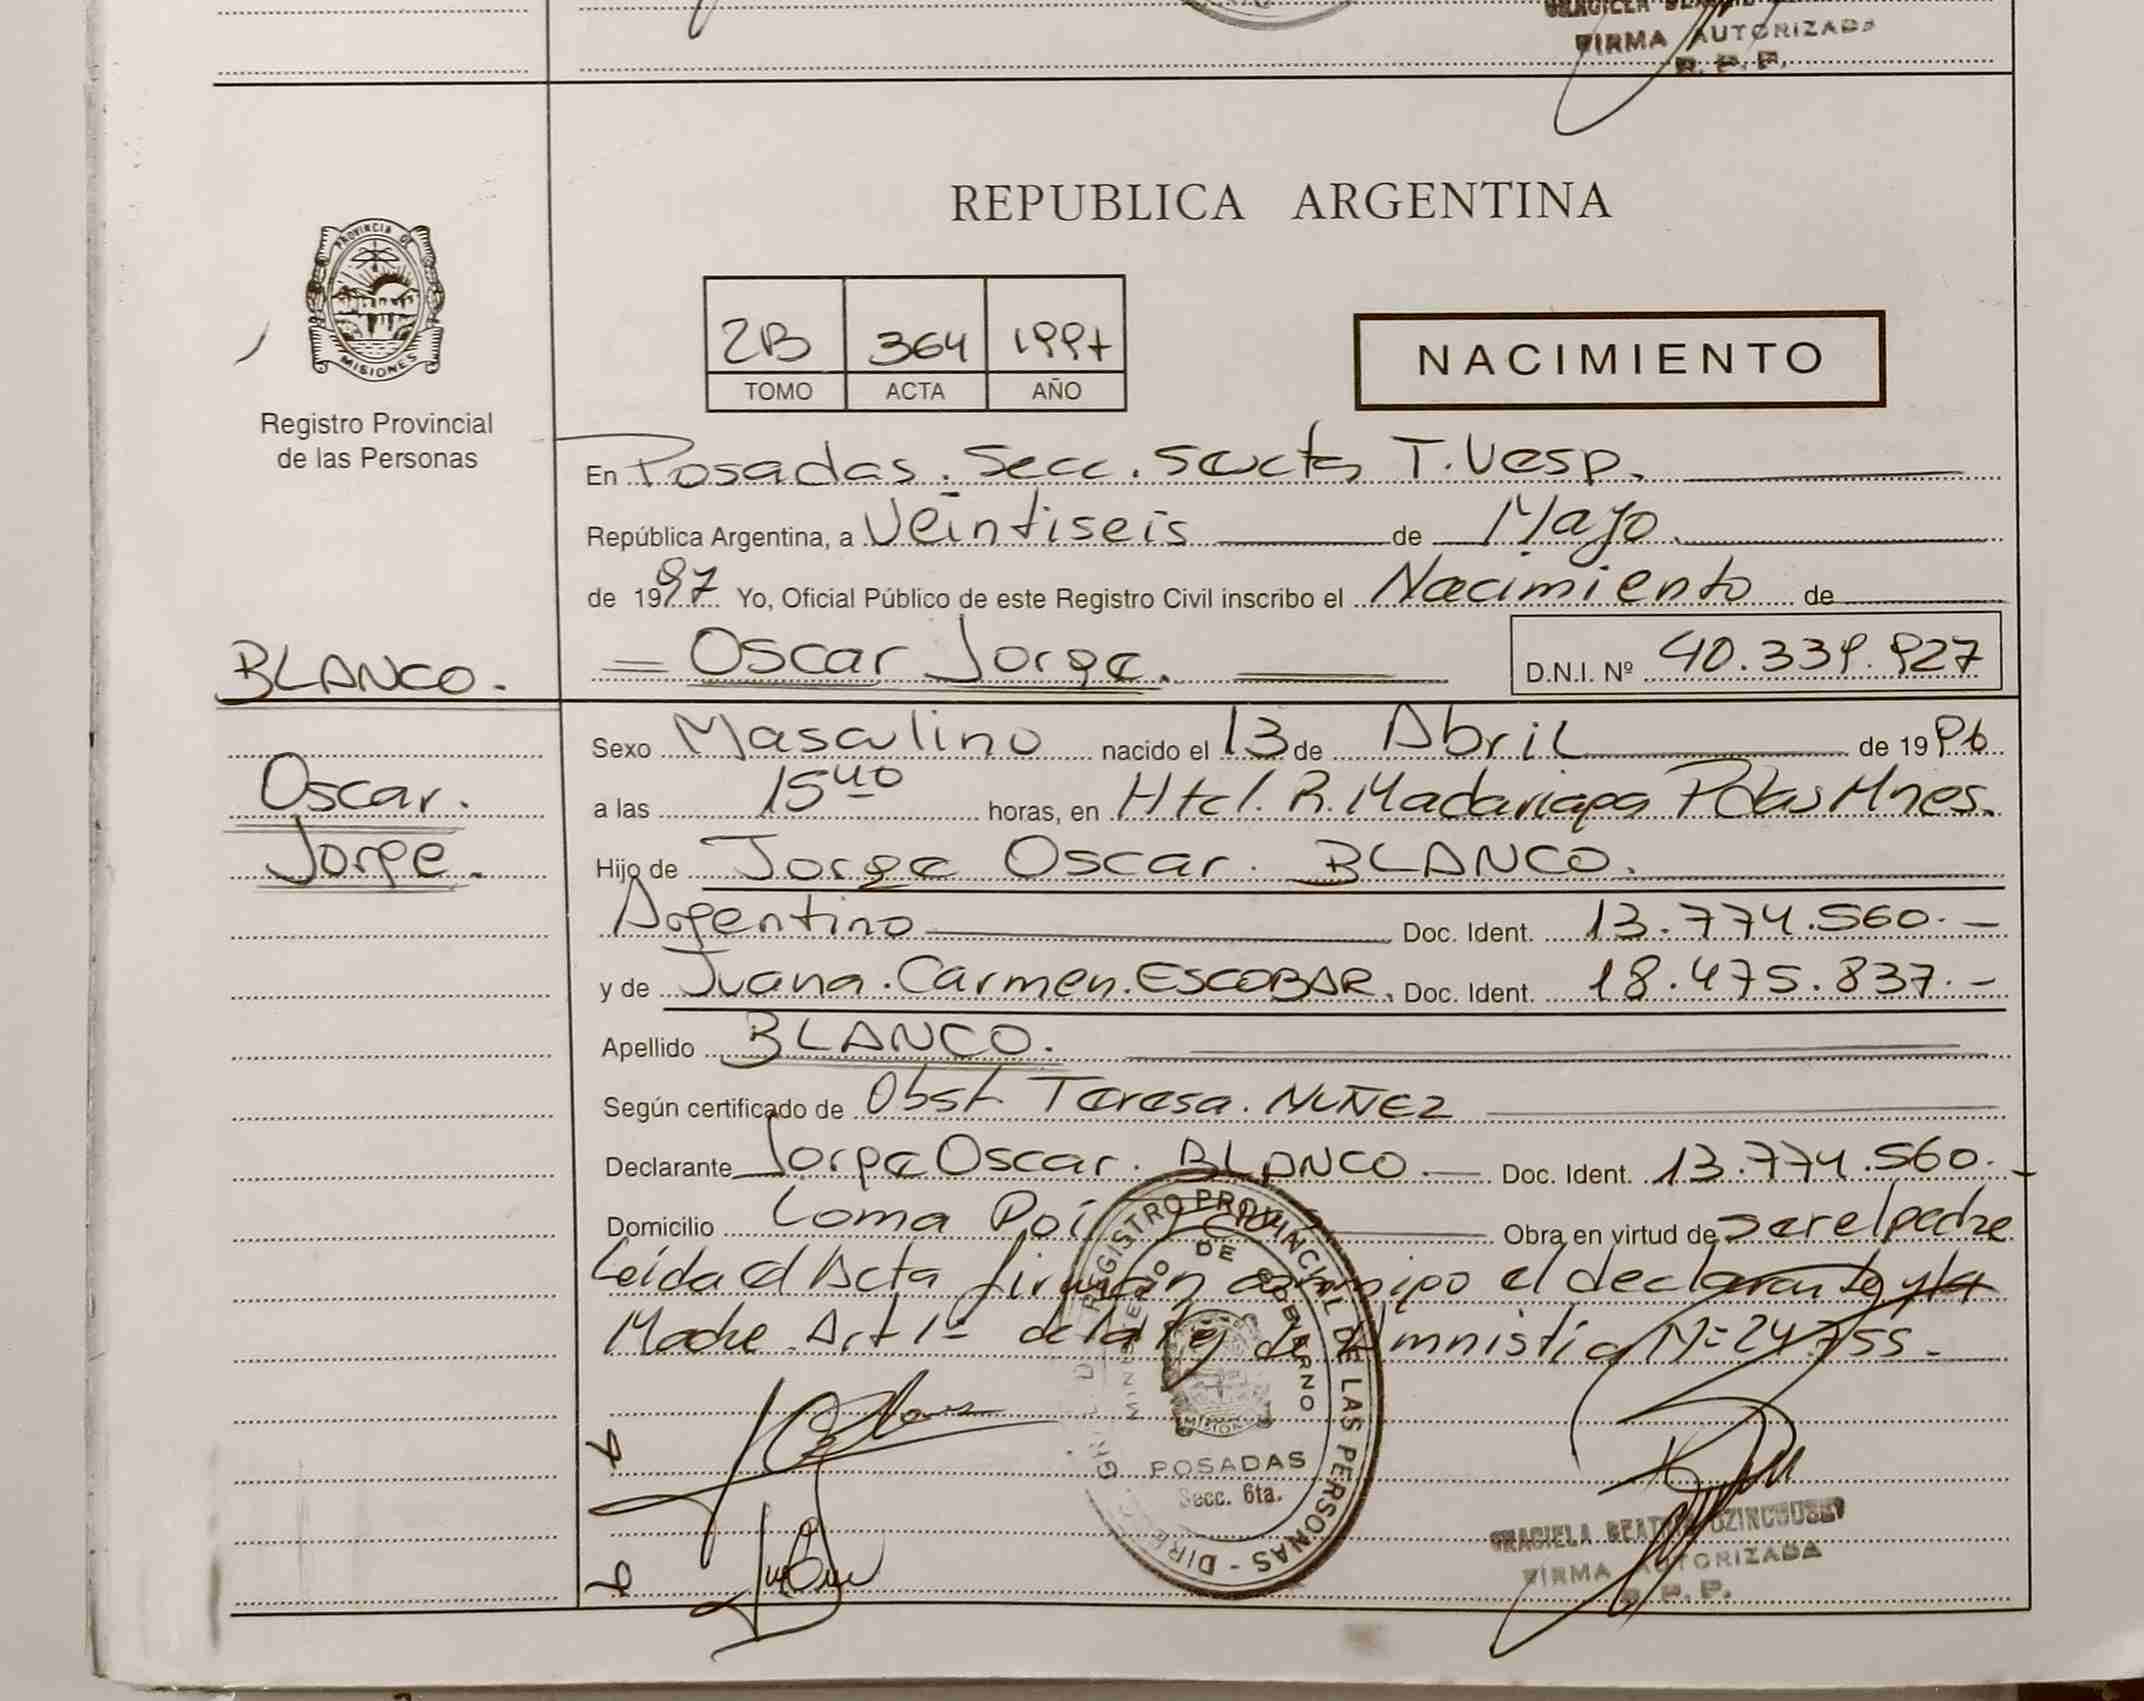 FIRMA AUTORIZADA
R. P. P.
REPUBLICA ARGENTINA
PROVINCIA DE
MISIONES
Registro Provincial
de las Personas
2B 364 1997
TOMO ACTA AÑO
NACIMIENTO
En Posadas. Secc. Sexta T. Vesp.
República Argentina, a Veintiseis de Mayo
de 1997 Yo, Oficial Público de este Registro Civil inscribo el Nacimiento de
BLANCO.
Oscar Jorge. D.N.I. Nº 40.339.927
Oscar.
Jorge.
Sexo Masculino nacido el 13 de Abril de 1996
a las 15 40 horas, en Htal. R. Madariaga Pdas Mnes.
Hijo de Jorge Oscar. BLANCO.
Argentino Doc. Ident. 13.774.560.-
y de Juana. Carmen. ESCOBAR. Doc. Ident. 18.475.837.-
Apellido BLANCO.
Según certificado de Obst. Teresa. NUÑEZ
Declarante Jorge Oscar. BLANCO Doc. Ident. 13.774.560.-
Domicilio Loma Obra en virtud de ser el padre
Leida el Acta firman conmigo el declarante y la
Madre. Art 1º de la Ley de Amnistia Nº 24.755.
REGISTRO PROVINCIAL DE LAS PERSONAS - DIREC
MINISTERIO DE GOBIERNO
MISIONES
POSADAS
Secc. 6ta.
GRACIELA BEATRIZ
FIRMA AUTORIZADA
R. P. P.